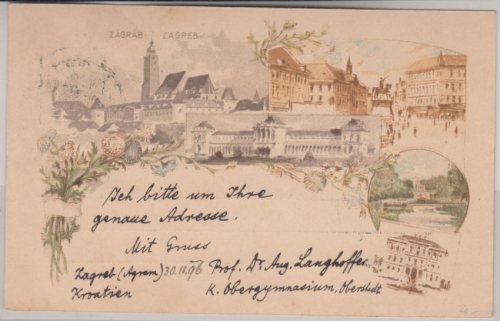 ZAGRAB ZAGREB
Ich bitte um Ihre
genaue Adresse.
Mit Gruss
Zagreb (Agram) 30.11.96 Prof. Dr. Aug. Langhoffer
Kroatien K. Obergymnasium, Oberstadt